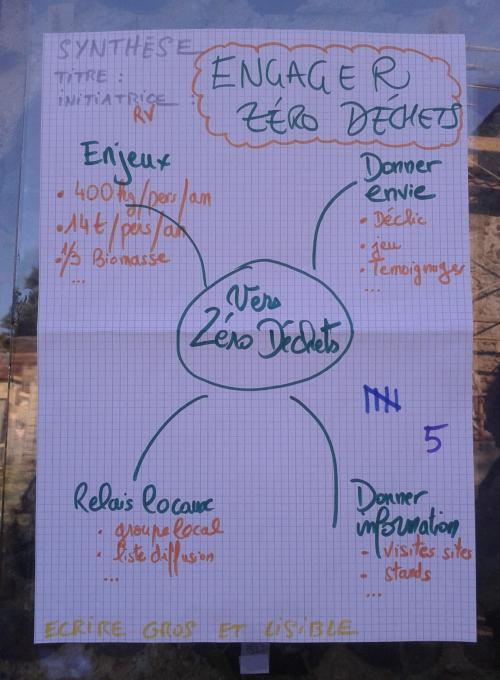 SYNTHÈSE
TITRE :
INITIATRICE :
RV
ENGAGER
ZÉRO DÉCHETS
Enjeux
• 400 kg/pers/an
• 14t/pers/an
• 1/3 Biomasse
...
Donner
envie
• Déclic
• jeu
• Témoignages
...
Vers
Zéro Déchets
5
Relais locaux
• groupe local
• liste diffusion
...
Donner
information
- visites sites
- stands
...
ECRIRE GROS ET LISIBLE